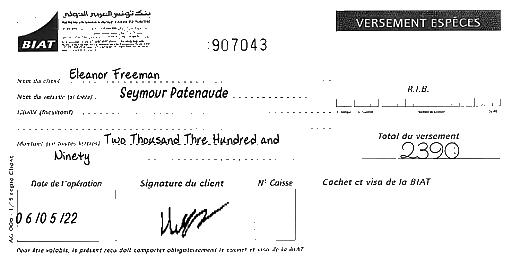 بنك تونس العربي الدولي
BIAT
VERSEMENT ESPÈCES
907043
Nom du client Eleanor Freeman
Nom du remettant (si tiers) Seymour Patenaude
R.I.B.
Libellé (facultatif)
Montant (en toutes lettres) Two Thousand Thre Hundred and
Ninety
Total du versement
2390
Date de l'opération
Signature du client
N° Caisse
Cachet et visa de la BIAT
06/05/22
Pour être valable, le présent reçu doit comporter obligatoirement le cachet et visa de la BIAT